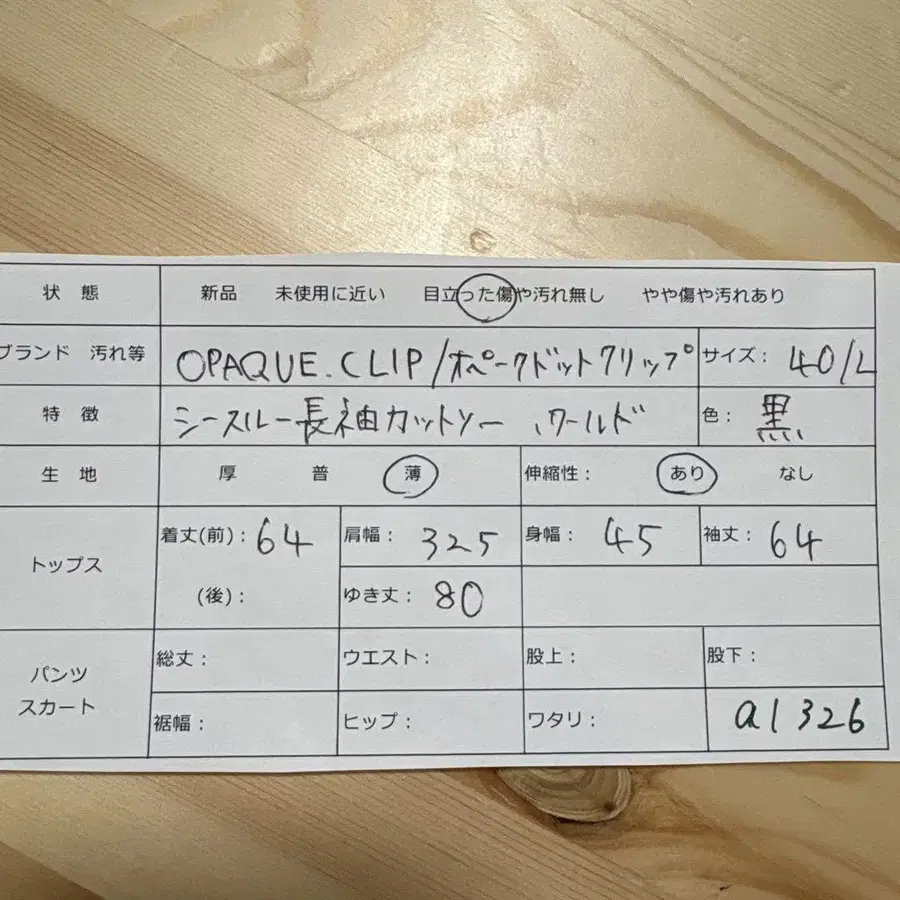 状 態 新品 未使用に近い 目立った傷や汚れ無し やや傷や汚れあり
ブランド 汚れ等 OPAQUE.CLIP/オペークドットクリップ サイズ: 40/L
特 徴 シースルー長袖カットソー、ワールド 色: 黒
生 地 厚 普 薄 伸縮性: あり なし
トップス 着丈(前): 64 肩幅: 325 身幅: 45 袖丈: 64
(後): ゆき丈: 80
パンツ スカート 総丈: ウエスト: 股上: 股下:
裾幅: ヒップ: ワタリ: a1326